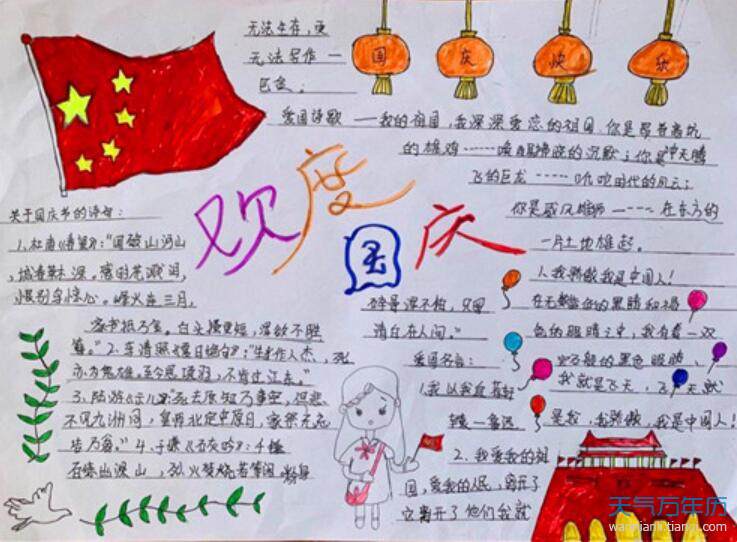 国 庆 快 乐
欢度国庆
关于国庆节的诗句：
1.杜甫《春望》："国破山河山
,城春草木深。感时花溅泪，
恨别鸟惊心。烽火连三月，
家书抵万金。白头搔更短，浑欲不胜
簪。"2.李清照《夏日绝句》："生当作人杰，死
亦为鬼雄。至今思项羽，不肯过江东。"
3.陆游《示儿》"死去原知万事空，但悲
不见九洲同，王师北定中原日，家祭无忘
告乃翁。"4.于谦《石灰吟》：千锤
万凿出深山，烈火焚烧若等闲,粉身
碎骨浑不怕，只留
清白在人间。"
爱国名言：
1.我以我血荐轩
辕—鲁迅
2.我爱我的祖
国，爱我的人民，离开了
它离开了他们我就
无法生存，更
无法写作—
巴金；
爱国诗歌——我的祖国，我深深爱恋的祖国.你是昂首高吭
的雄鸡……唤醒拂晓的沉默；你是冲天腾
飞的巨龙……叱咤时代的风云；
你是威风雄狮……在东方的
一片土地雄起。
人我骄傲我是中国人！
在无数蓝色的黑睛和褐
色的眼睛之中，我有着一双
宝石般的黑色眼睛，
我就是飞天，飞天就
是我，我骄傲，我是中国人！
天气万年历
wannianli.tianqi.com